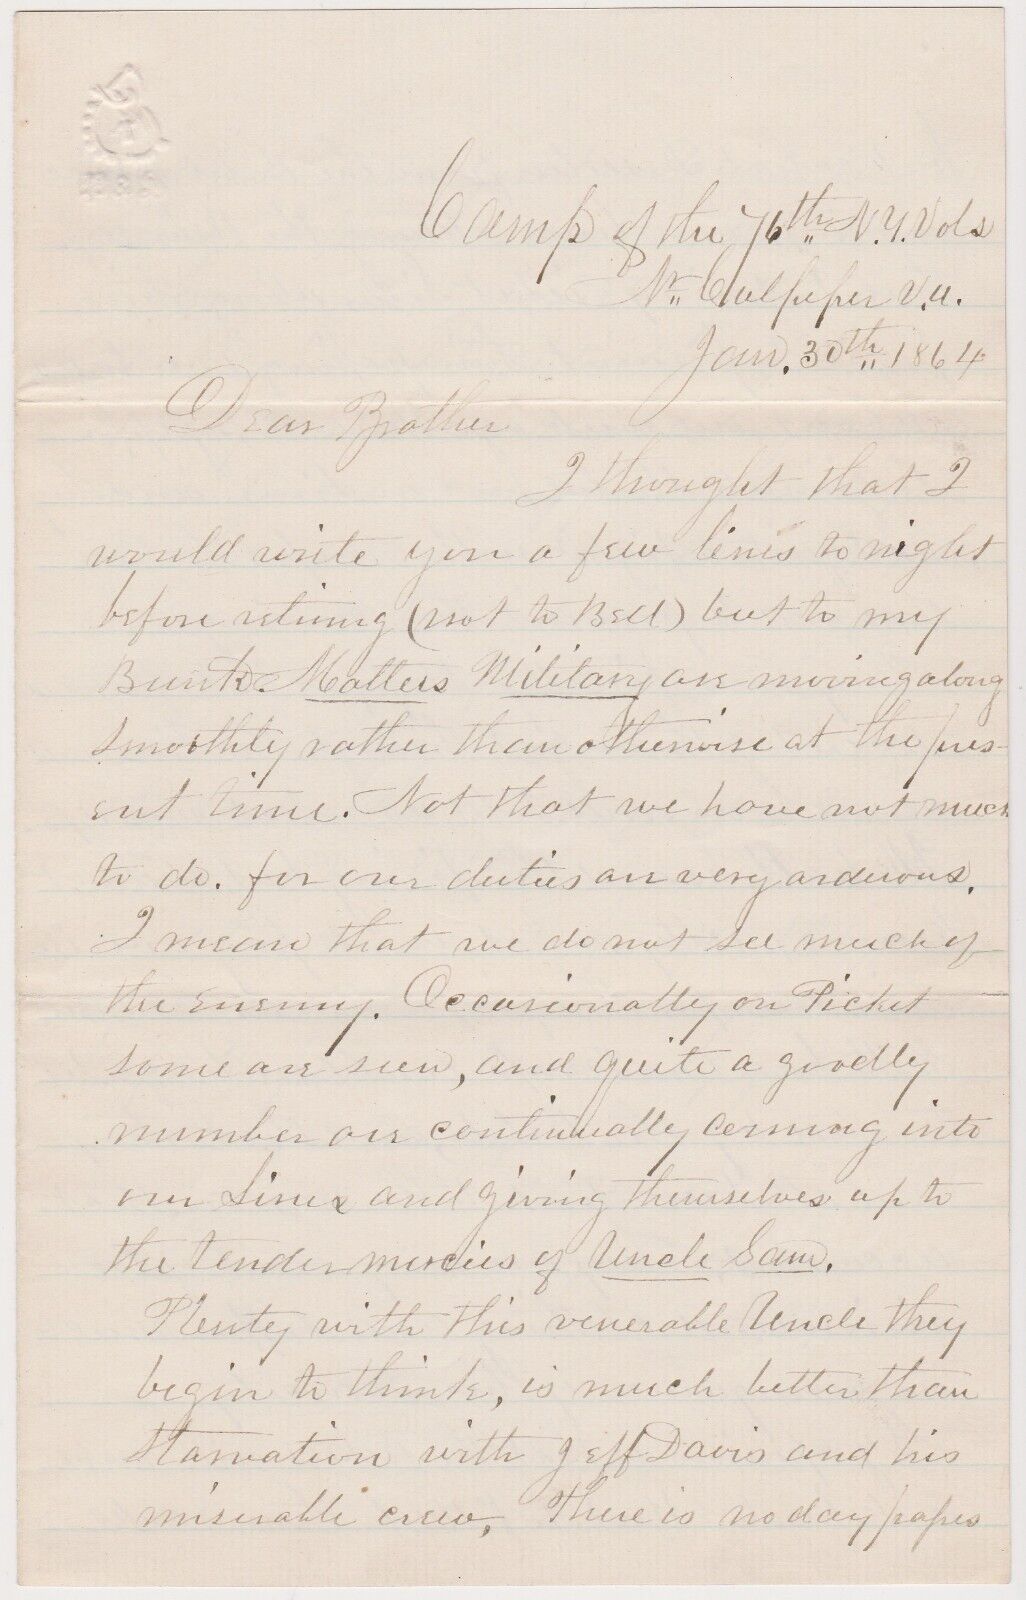 Camp of the 76th N.Y. Vols
Nr. Culpeper V.a.
Jan. 30th 1864
Dear Brother
I thought that I
would write you a few lines to night
before retiring (not to Bed) but to my
Bunk. Matters Military are moving along
smoothly rather than otherwise at the pres-
ent time. Not that we have not much
to do. for our duties are very arduous.
I mean that we do not see much of
the enemy. Occasionally on Picket
some are seen, and quite a goodly
number are continually coming into
our Lines and giving themselves up to
the tender mercies of Uncle Sam.
Plenty with this venerable Uncle they
begin to think, is much better than
starvation with Jeff Davis and his
miserable crew, There is no day passes